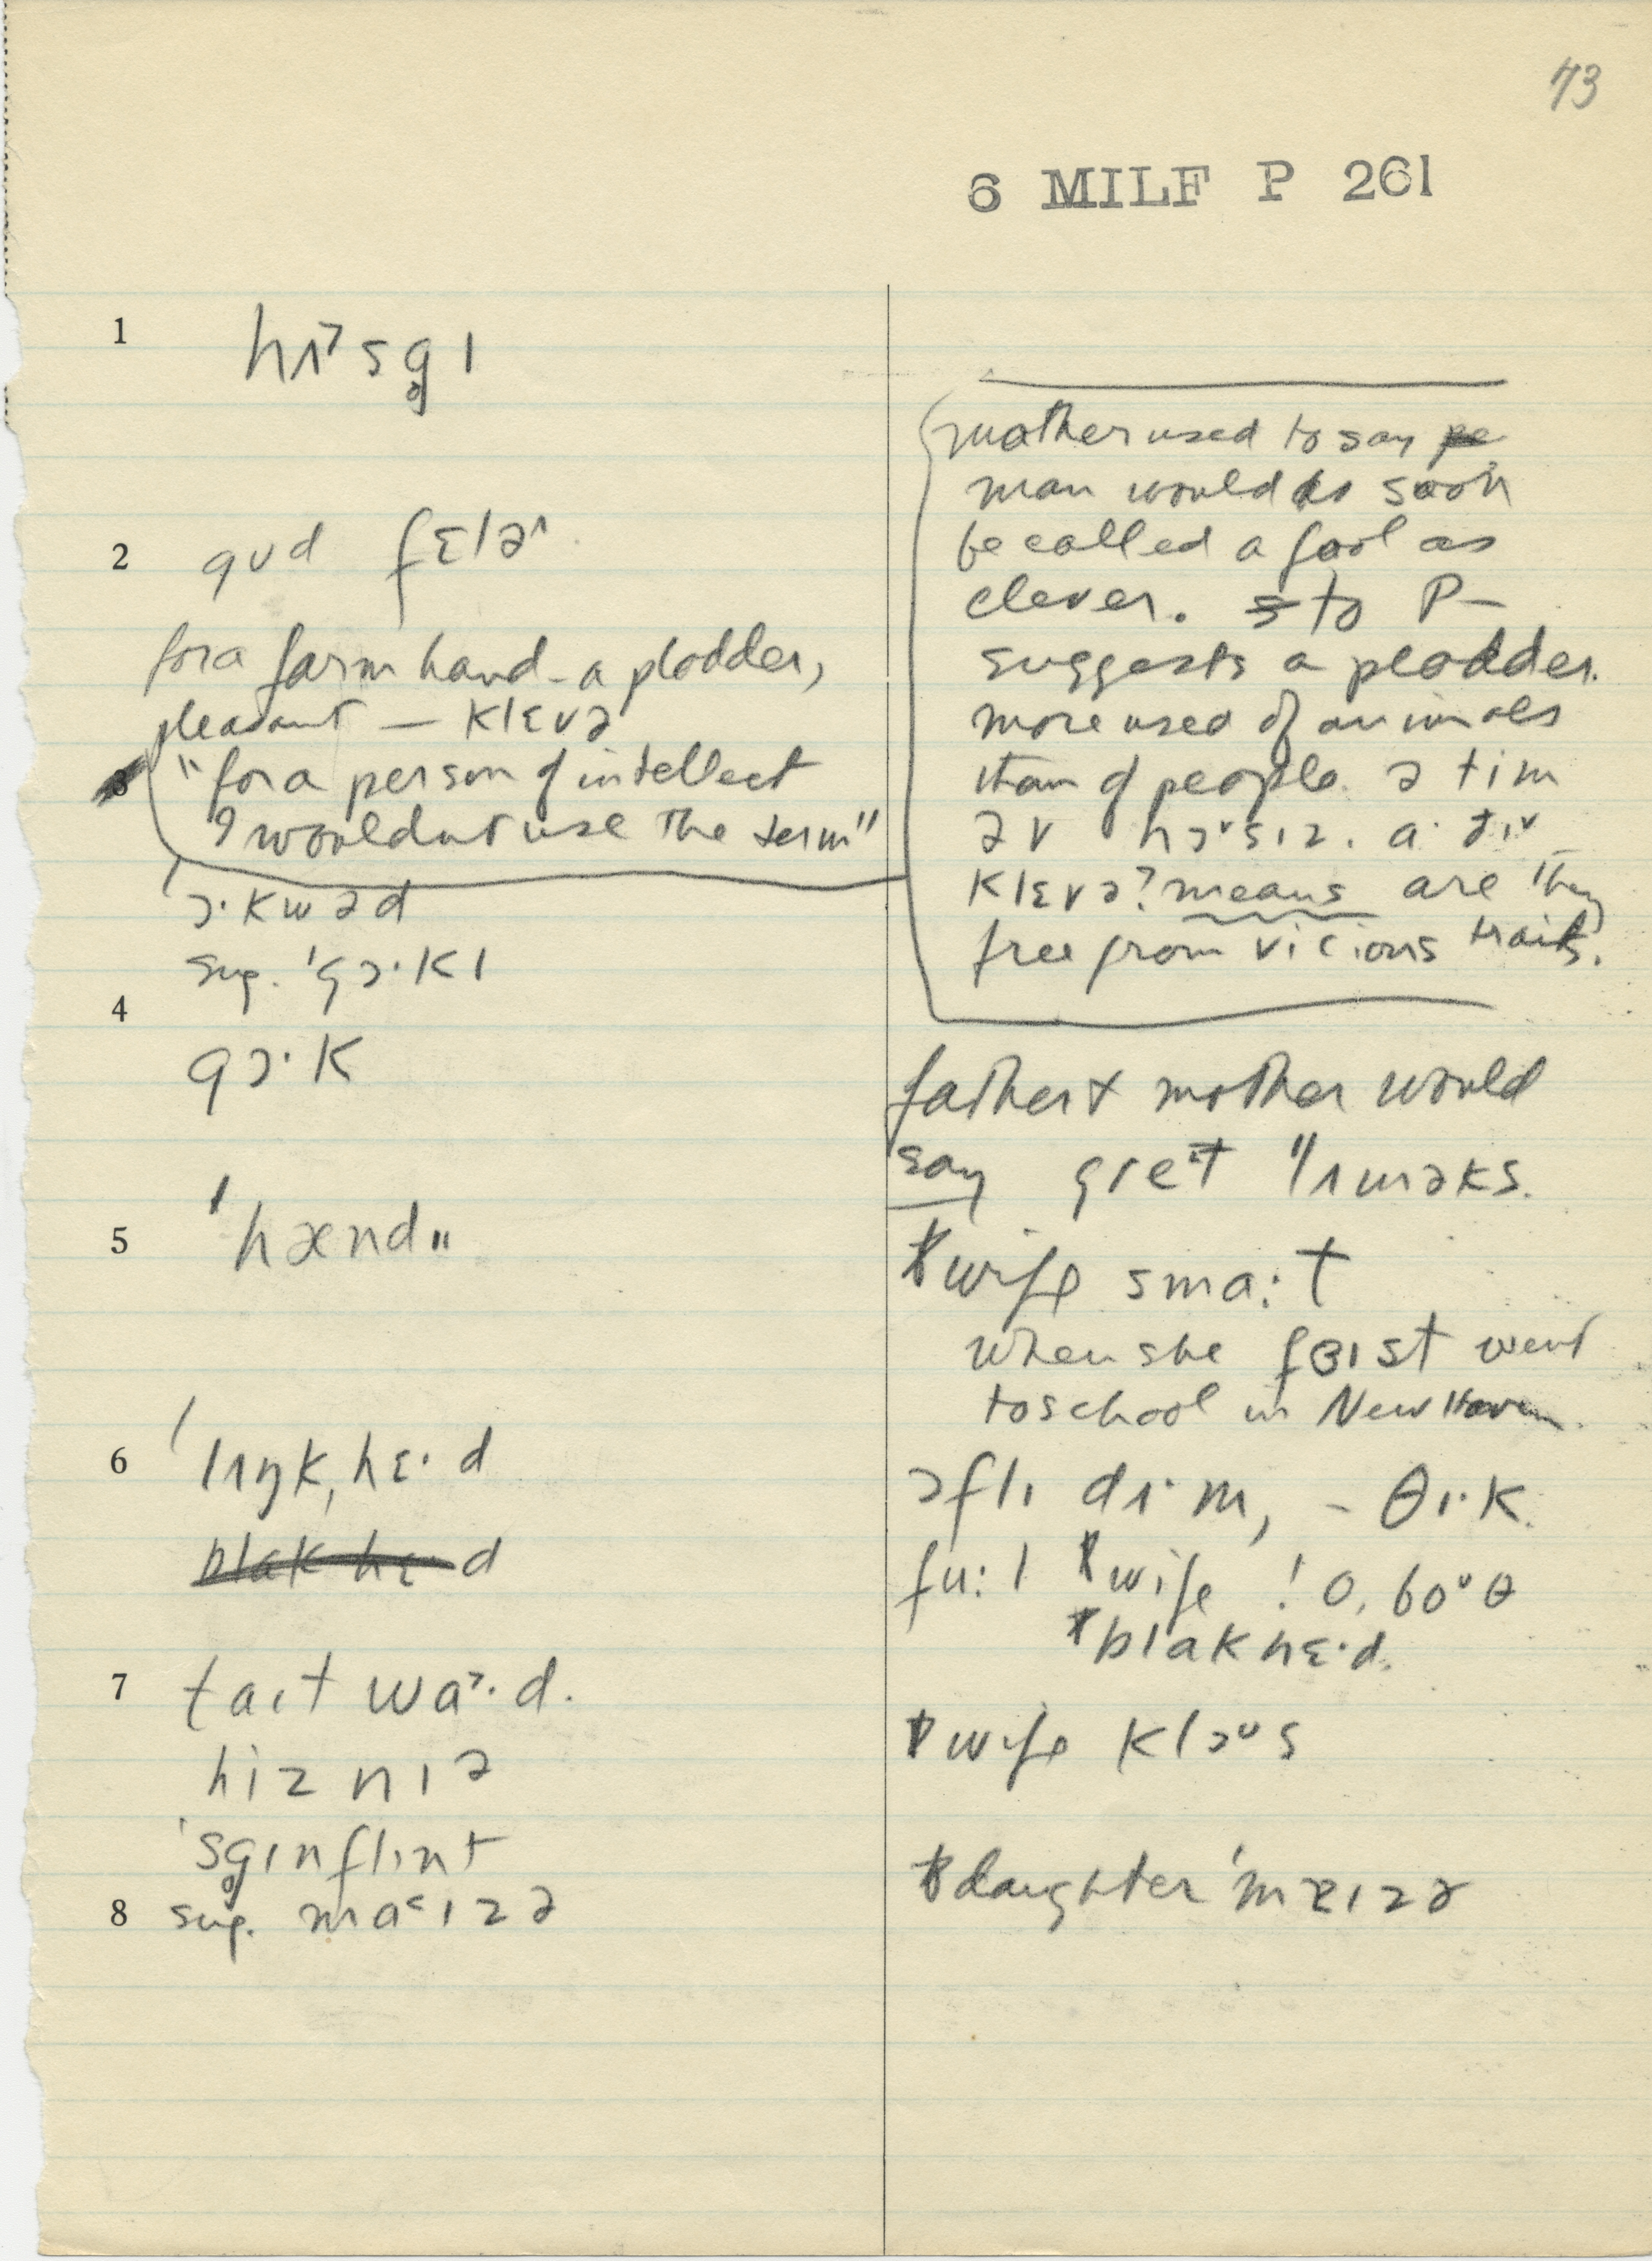 73
6 MILF P 261
1 hʌ˃sg̥ɪ
2 gʊd fɛləʴ
for a farm hand - a plodder,
pleasant — klɛvə
3 "for a person of intellect
I wouldnt use the term"
ˈɔ·kwəd
sug. ˈgɔ·kɪ
4
gɔ·k
5 ˈhænd
6 ˈlʌŋkˌhɛ·d
blak hɛ·d
7 taɪt wa˃·d.
hiz nɪə
ˈsg̥ɪnflɪnt
8 sug. ma˂ɪzə
mother used to say
man would as soon
be called a fool as
clever. to P—
suggests a plodder.
more used of animals
than of people. ə tim
əv hɔˇsɪz. a·
klɛvə? means are they
free from vicious traits.
father + mother would
say
wife sma:t
when she fɜɪst went
to school in New Haven.
ɔflɪ dɪ·m, - θɪ·k.
fu:l wife ! o, boᵘθ
blak hɛ·d.
wife klɔᵘs
daughter ˈmɐɪzə